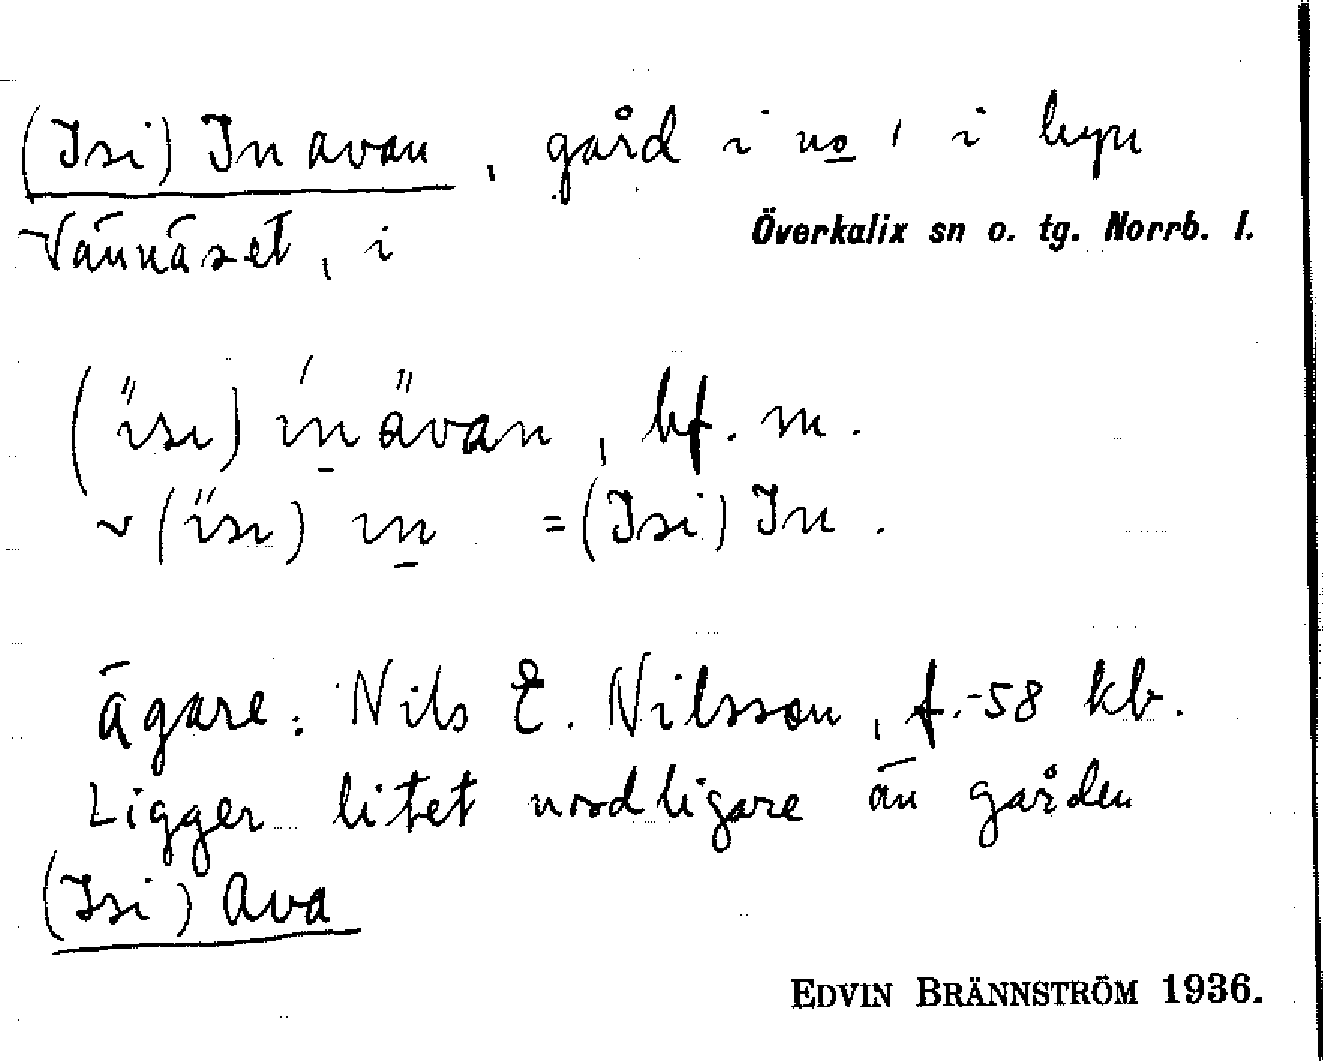 (Isi) Inavan, gård i no, i byn
Vännäset, i
Överkalix sn o. tg. Norrb. l.
(ı̋sı) ı́na̋van, bf. m.
~ (ı̋sı) ın = (Isi) In.
ägare: Nils E. Nilsson, f.-58 kb.
Ligger litet nordligare än gården
(Isi) Ava
EDVIN BRÄNNSTRÖM 1936.